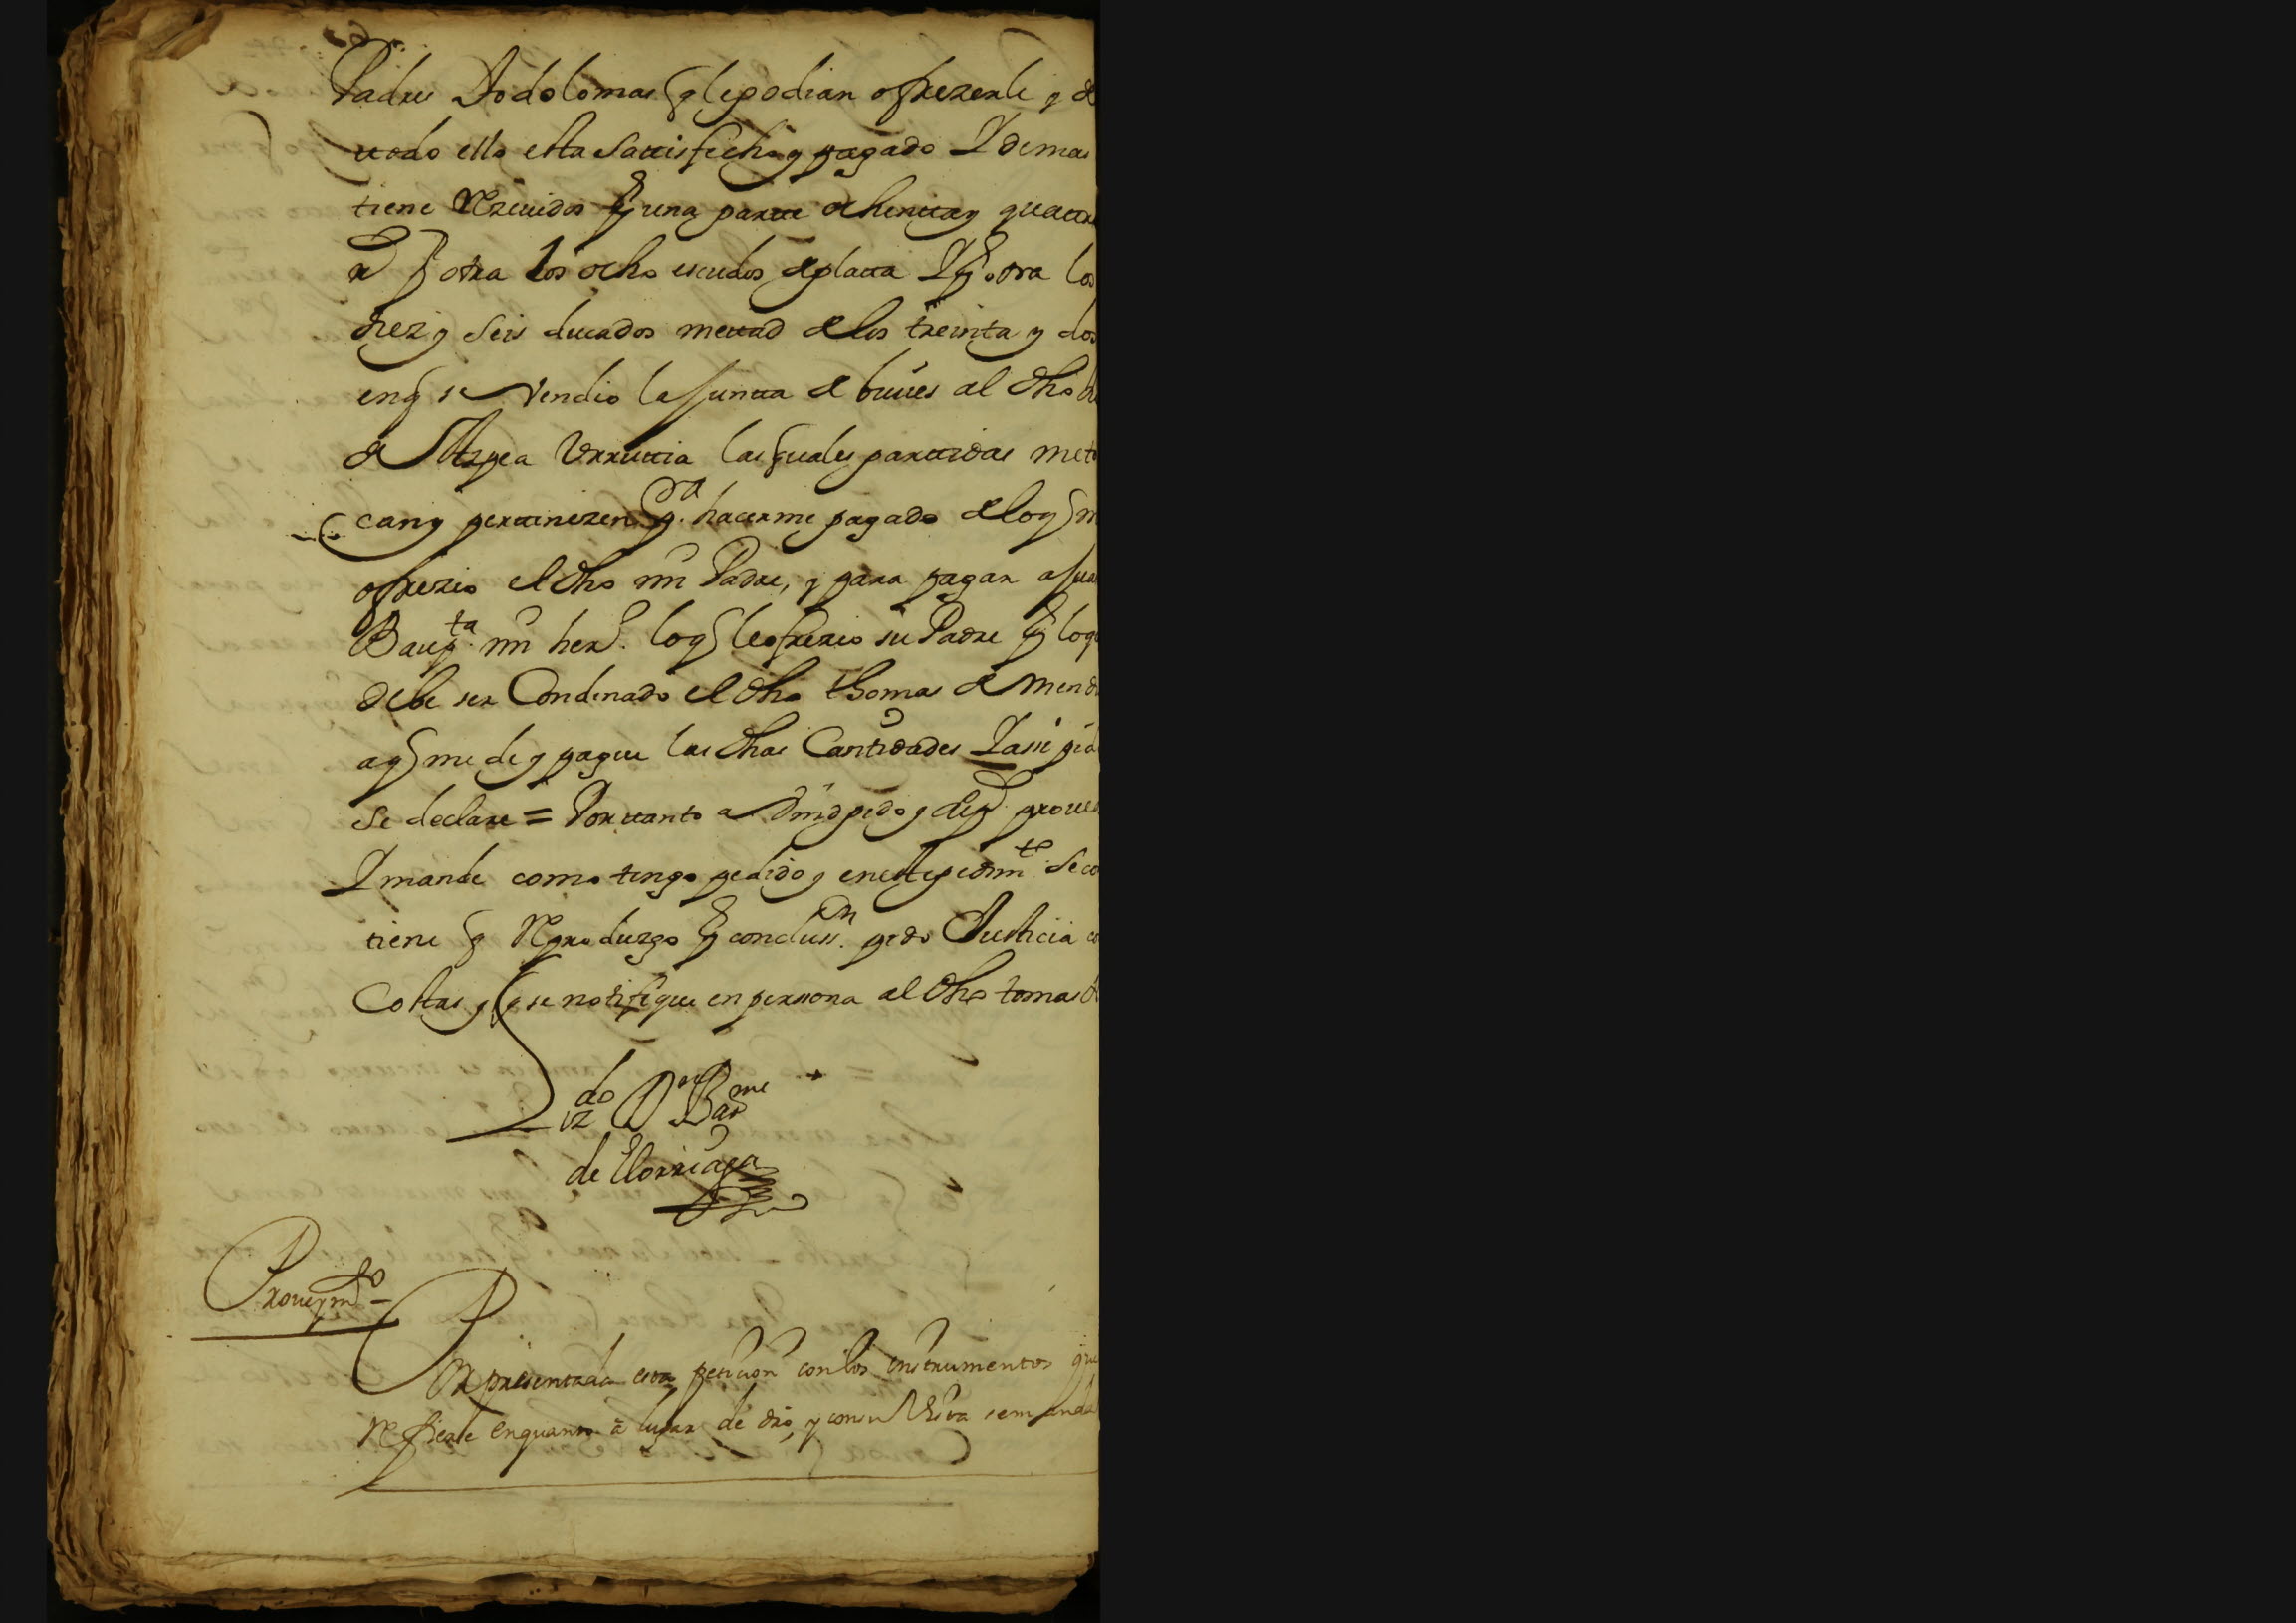 Padres Todo lo mas q le podian ofrezerle y de
ttodo ello esta sattisfecho y pagado Y demas
tiene Rezeuidos por una partte ochentta y quattro
Rs por otra los ocho escudos de platta Y por otra los
diez y seis ducados mettad de los treinta y dos
en q se vendio la juntta de bueies al dho
de Atzpea Vrruttia las quales parttidas me to
can y perttenezen pa. hacerme pagado de lo q m
ofrezio el dho mi Padre, y para pagar a Juan
Baupta. mi hero. lo q le ofrezio su Padre por lo q
debe ser Condenado el dho thomas de Mend
a q me de y pague las dhas Cantidades Y assi pido
se declare = Por ttanto a Vmd pido y supco. prouea
Y mande como tengo pedido y en este pedimto. se co
tiene q Reproduzgo por conclussn. pido Justicia co
Costas, y q se notifique en persona al dho tomas de
Lizdo Dn Barme
de Elorriaga
Proueymto
Por presentada esta peticion con los instrumentos que
Refiere en quanto à lugar de dro, y con su Vista se manda